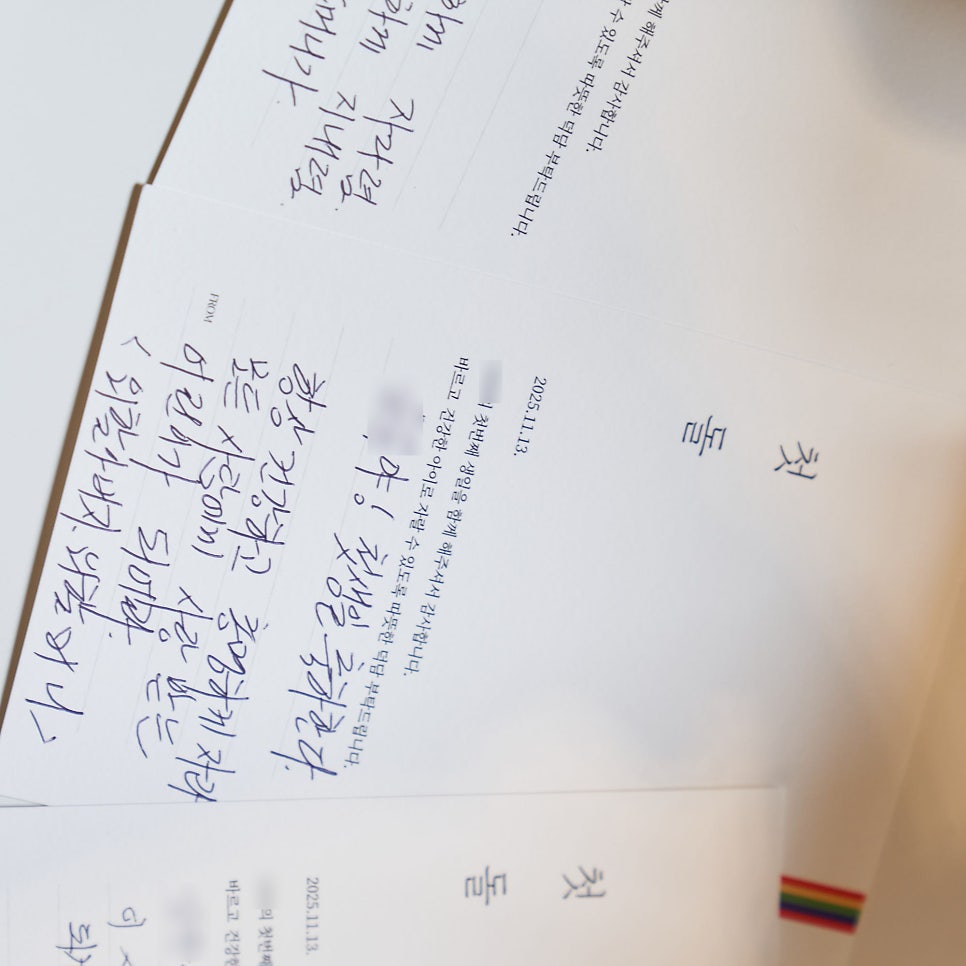 함께 해주셔서 감사합니다.
랄 수 있도록 따뜻한 덕담 부탁드립니다.
자라렴.
지내렴.
머니가
첫
돌
2025.11.13.
의 첫번째 생일을 함께 해주셔서 감사합니다.
바르고 건강한 아이로 자랄 수 있도록 따뜻한 덕담 부탁드립니다.
야! 첫 생일 축하한다.
항상 건강하고 총명하게 자라
모든 사람에게 사랑 받는
어린이가 되어라.
FROM
<외할아버지.외할머니>
첫
돌
2025.11.13.
의 첫번째
바르고 건강한